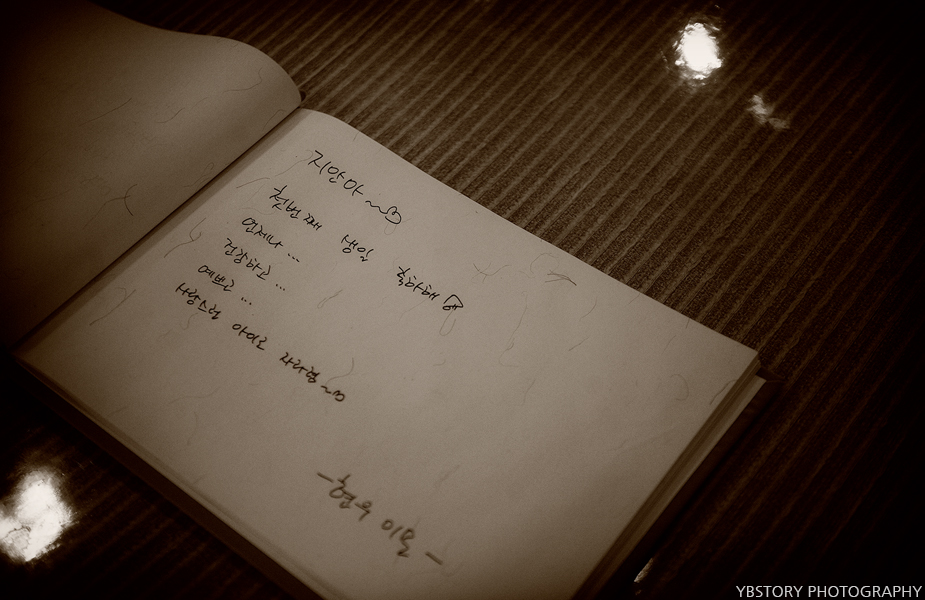 지안아~♡
첫번째 생일 축하해
언제나...
건강하고...
예쁘고...
사랑스런 아이로 자라렴~♡
이모
YBSTORY PHOTOGRAPHY